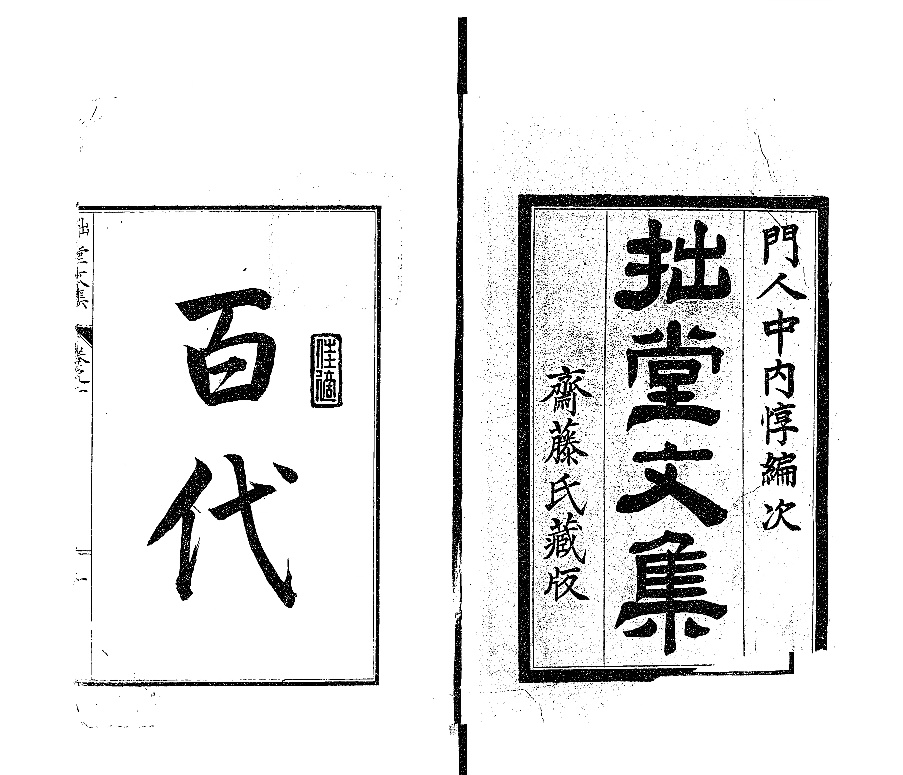 門人中内惇編次
拙堂文集
齋藤氏藏版
百代
拙堂文集
卷之一